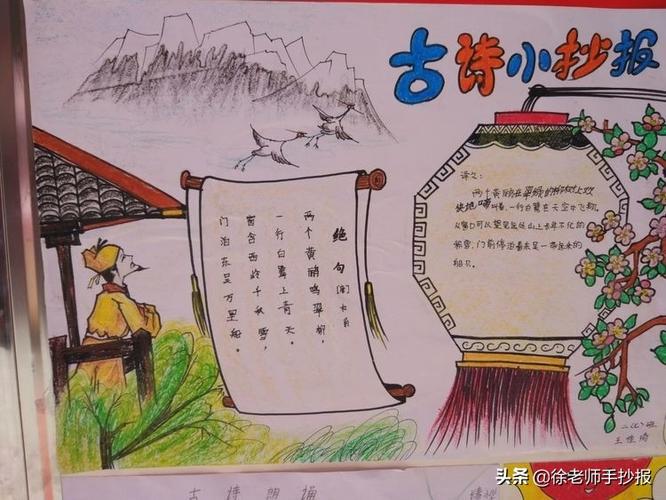 古诗小抄报
绝句 [唐] 杜甫
两个黄鹂鸣翠柳,
一行白鹭上青天。
窗含西岭千秋雪,
门泊东吴万里船。
译文:
两个黄鹂在翠绿的柳树上欢
快地鸣叫着,一行白鹭在天空中飞翔,
从窗口可以望见西岭山上千年不化的
积雪,门前停泊着来
船只。
二(七)班
王佳
古诗朗诵
头条 @徐老师手抄报